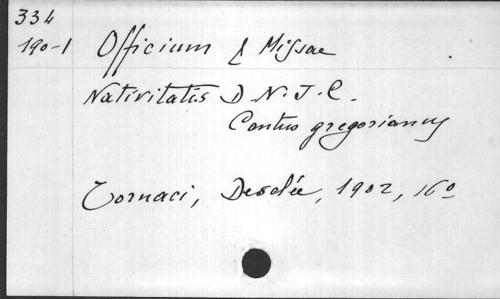 334
190-1 Officium & Missae
Nativitatis D N. J. C.
Cantus gregorianus
Tornaci, Desclée, 1902, 16º